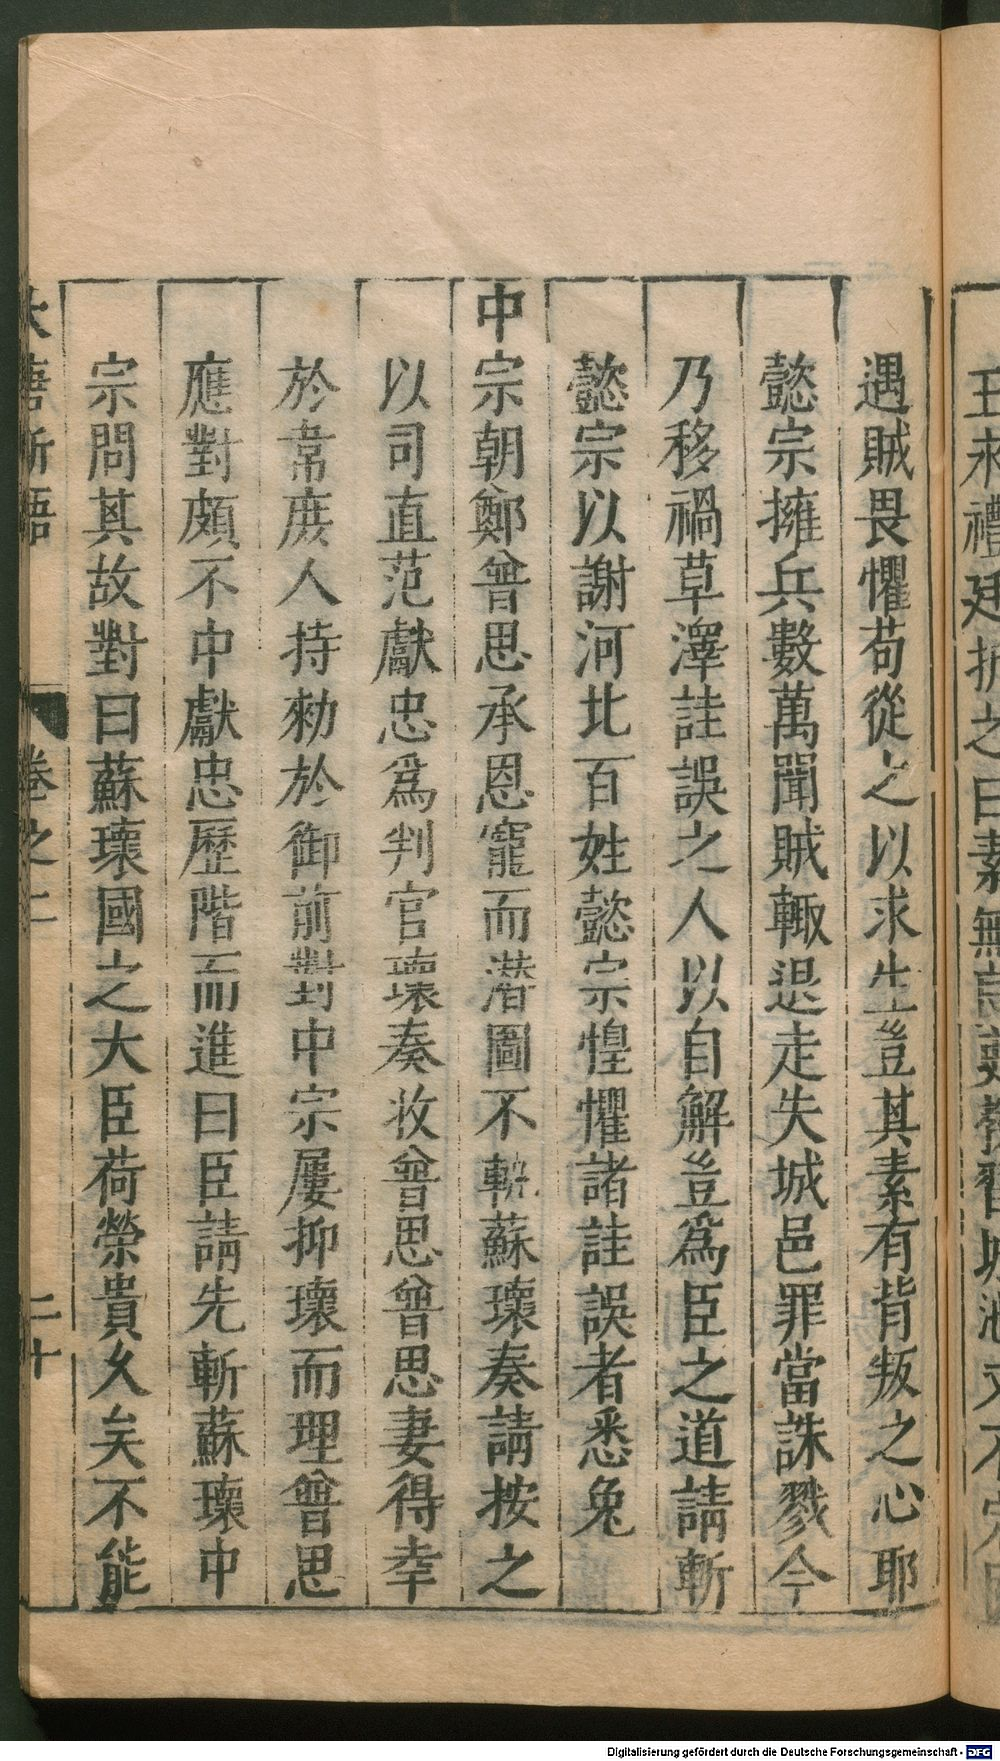 遇賊畏懼苟從之以求生豈其素有背叛之心耶
懿宗擁兵數萬聞賊輙退走失城邑罪當誅戮今
乃移禍草澤詿誤之人以自解豈爲臣之道請斬
懿宗以謝河北百姓懿宗惶懼諸詿誤者悉兔
中宗朝鄭曾思承恩寵而潛圖不軌蘇瓌奏請按之
以司直范獻忠爲判官瓌奏收曾思曾思妻得幸
於韋庶人持勑於御前對中宗屢抑瓌而理曾思
應對頗不中獻忠歷階而進曰臣請先斬蘇瓌中
宗問其故對曰蘇瓌國之大臣荷榮貴久矣不能
大唐新語 卷之二 二十
Digitalisierung gefördert durch die Deutsche Forschungsgemeinschaft - DFG